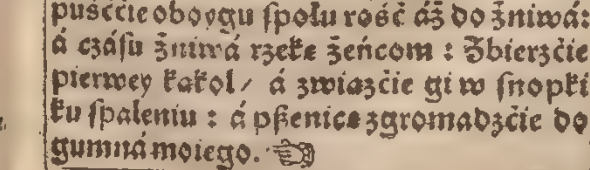 puśććie oboygu społu rość áż do żniwá:
á czásu żniwá rzekę żeńcom : Zbierzćie
pierwey kąkol / á zwiążćie gi w snopki
ku spaleniu : á pßenicę zgromadzćie do
gumná moiego. ☜